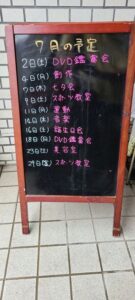 7月の予定
2日(土) DVD鑑賞会
4日(月) 創作
7日(木) 七夕会
9日(土) スポーツ教室
11日(月) 運動
14日(木) 音楽
16日(土) 誕生日会
18日(月) DVD鑑賞会
23日(土) 美容室
29日(金) スポーツ教室